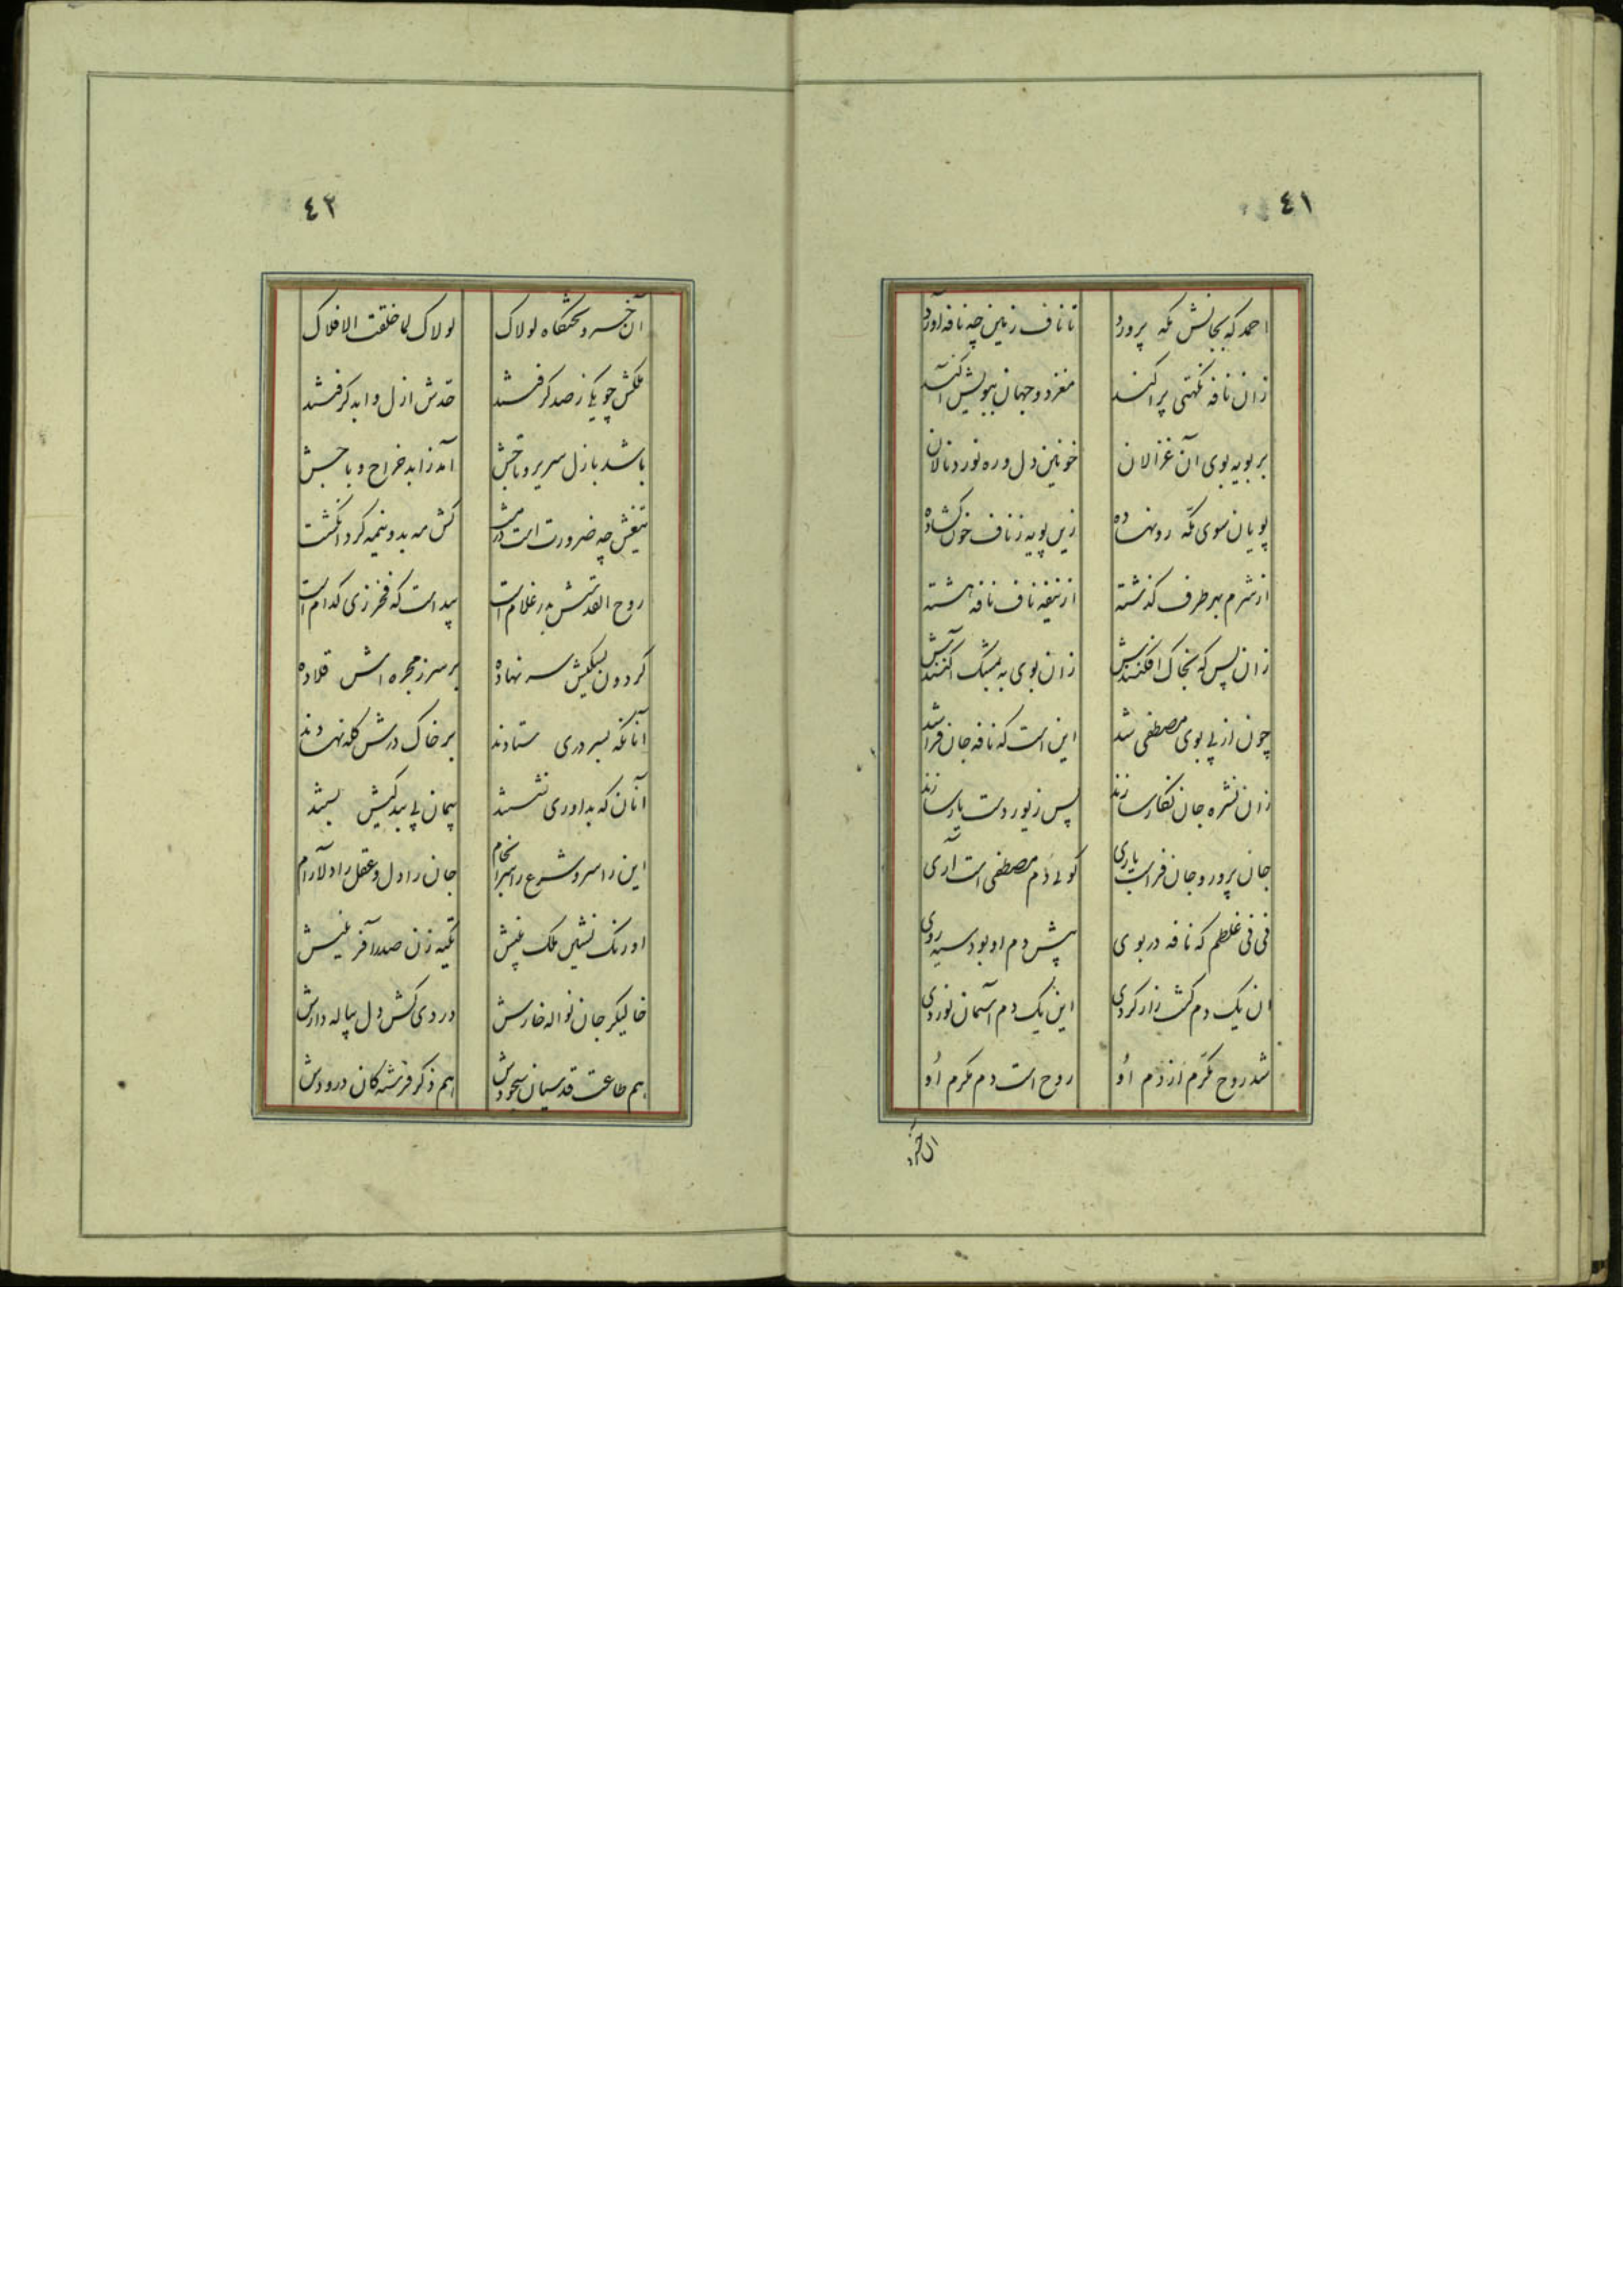 ٤١
احمد که بجانش مکه پرورد تا ناف زمین چه نافه آورد
زان نافه نکهتی پراکند مغز دو جهان ببویش آکند
بر بویه بوی آن غزالان خونین دل و ره نورد و نالان
پویان سوی مکه رو نهاده زین پویه ز ناف خون کشاده
از شرم بهر طرف کذشته از نیفه ناف نافه هشته
زان پس که بخاک افکنندش زان بوی به مشک آکنندش
چون از پی بوی مصطفی شد این است که نافه جان فزا شد
زان نشره جان نکار سازند پس زیور دست یار سازند
جان پرور و جان فزاست باری کوئی دم مصطفی است آری
نی نی غلطم که نافه در بوی پیش دم او بود سیه روی
ان یک دم کشت زار کردی این یک دم آسمان نوردی
شد روح مکرم از دم او روح است دم مکرم او
ان خسرو
٤٢
آن خسرو تختگاه لولاک لولاک لما خلقت الافلاک
ملکش چو یکاز صد کرفتند حدش ازل و ابد کرفتند
باشد بازل سریر و تاجش آمد ز ابد خراج و باجش
تیغش چه ضرورت است در مشت کش مه بدو نیمه کرد انکشت
روح القدسش بدر غلام است پیداست که فخر زی کدام است
کردون بسکیش سر نهاده بر سر ز مجره اش قلاده
آنانکه بسروری ستادند بر خاک درش کله نهادند
آنان که بداوری نشستند پیمان پی بندکیش بستند
این را سر و شرع را سرانجام جان را دل و عقل را دلارام
اورنک نشین ملک بینش تکیه زن صدر آفرینش
خالیکر جان نواله خوارش دردی کش دل پیاله دارش
هم طاعت قدسیان سجودش هم ذکر فرشتکان درودش